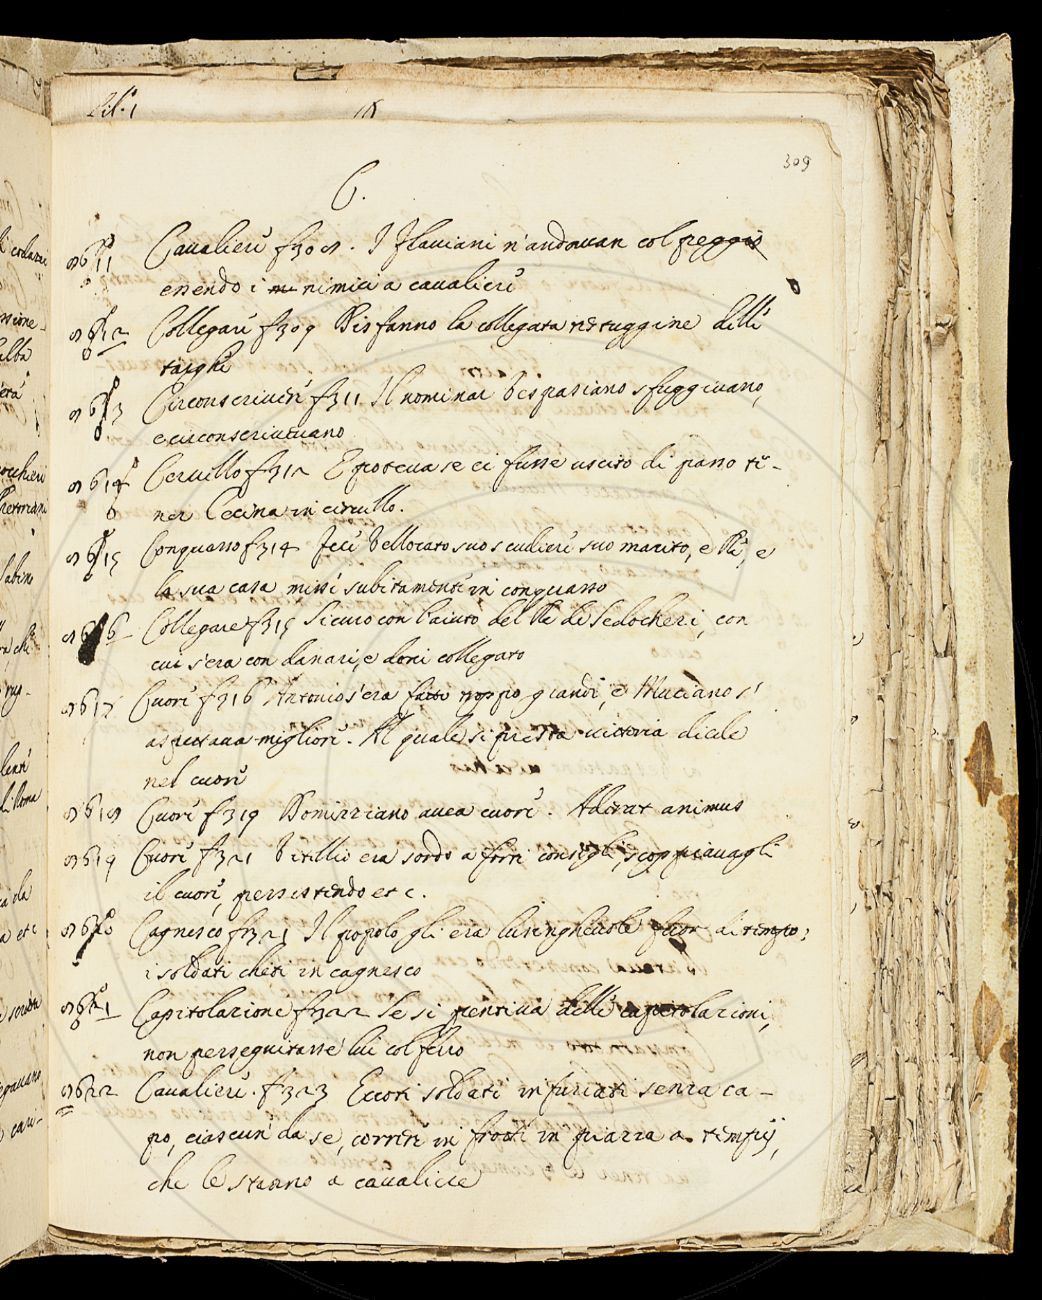 Lib. 1
309
C.
11 Cavalieri f 308. I Flaviani n'andavan col peggio
essendo i nimici a cavalieri
12 Collegare f 309 Disfanno la collegata ruggine delle
targhe
13 Circonscrivere f 311 Il nominar Vespasiano sfuggivano,
e circonscrivevano
14 Cervello f 312 E poteva se ci fusse uscito di passo te-
ner Cecina in cervello.
15 Conquasso f 314 Fece Vellocato suo scudiere suo marito, e Re, e
la sua casa misse subitamente in conquasso
16 Collegare f 315 Sicuro con l'aiuto del Re de Sedocheri, con
cui s'era con danari, e doni collegato
8617 Cuore f 316 Antonio s'era fatto troppo grande, e Muciano s'
aspettava migliore. Al quale si presta vittoria dicele
nel cuore
8618 Cuore f 319 Domizziano avea cuore. Aderat animus
8619 Cuore f 321 Vitellio era sordo a forti consigli, scoppiavagli
il cuore, persistendo etc.
8620 Cagnesco f 321 Il popolo gli era lusinghevole fuor di tempo;
i soldati cheti in cagnesco
8621 Capitolazione f 322 Se si pentiva delle capitolazioni,
non perseguitasse lui col ferro
8622 Cavaliere. f 323 Eccoti soldati infuriati senza ca-
po, ciascun da se, correre in frotte in piazza a tempij,
che le stanno a cavaliere